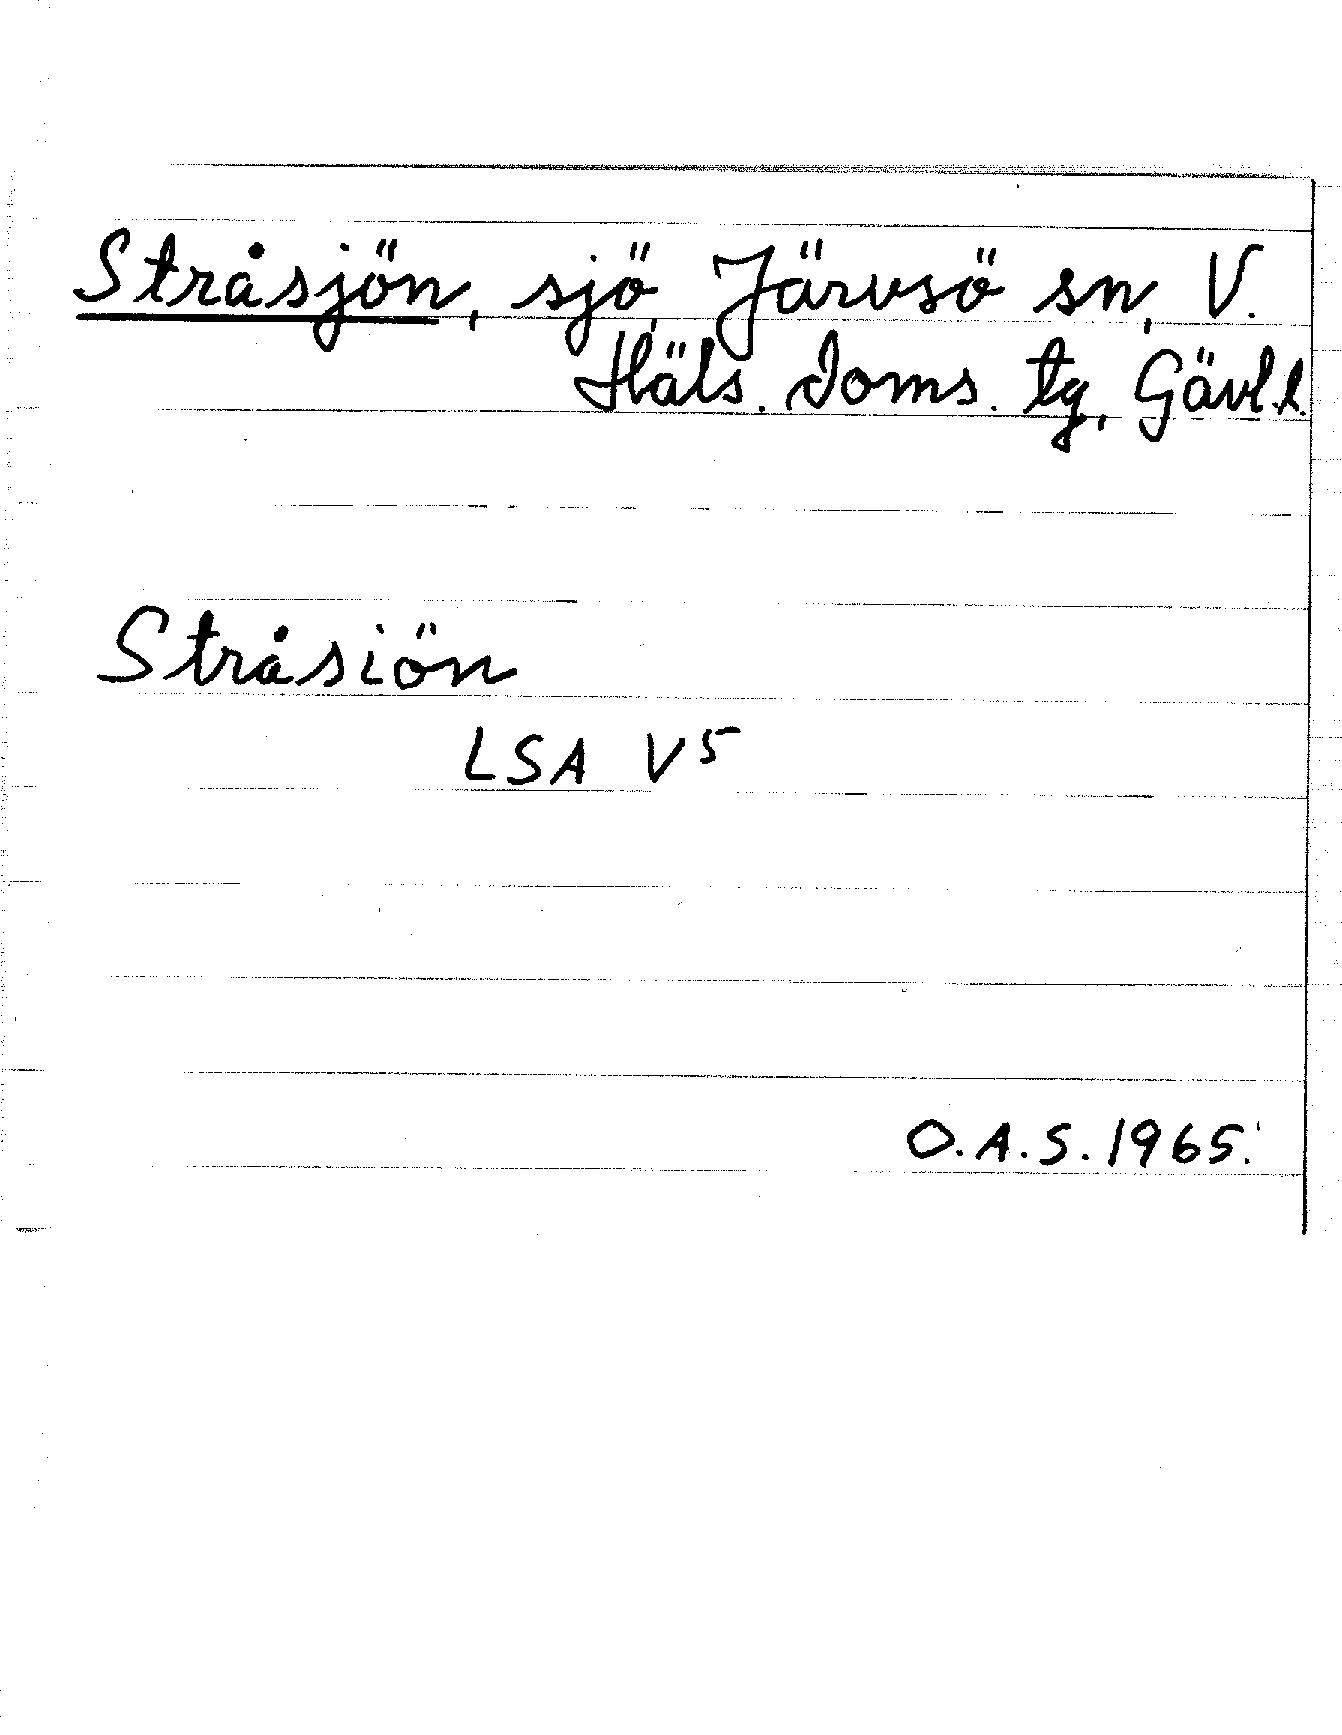 Stråsjön, sjö, Järvsö sn, V.
Häls. doms. tg, Gävl.l.
Stråsiön
LSA V5
O.A.S. 1965.